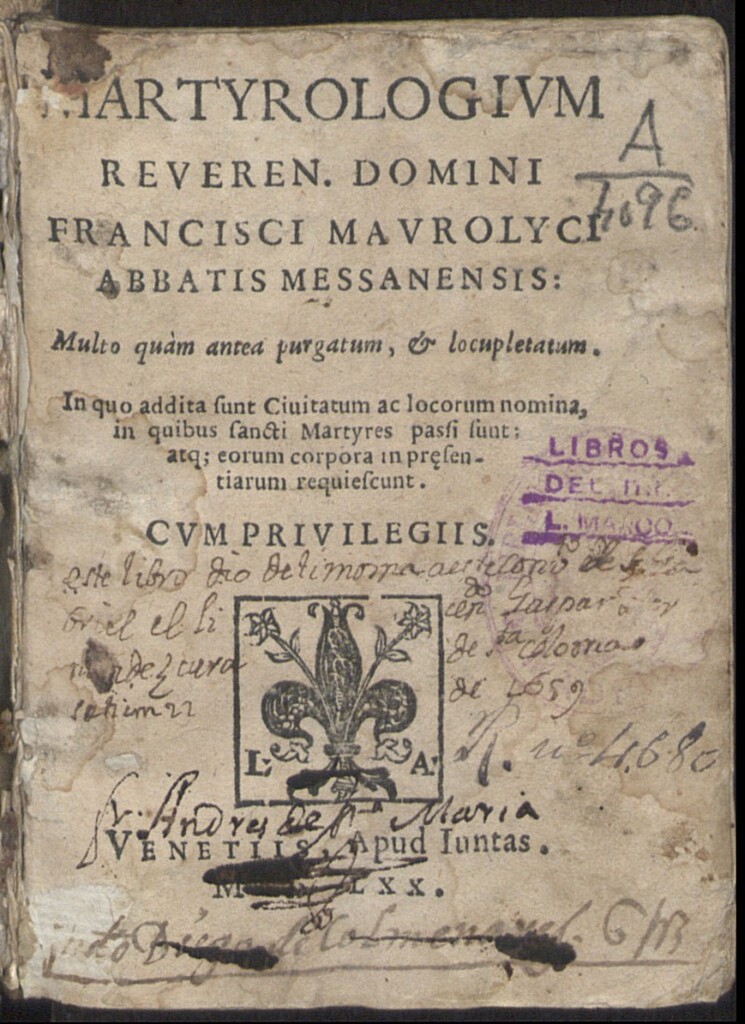 MARTYROLOGIVM
REVEREN. DOMINI
FRANCISCI MAVROLYCI
ABBATIS MESSANENSIS:
A
Multo quàm antea purgatum, & locupletatum.
In quo addita sunt Ciuitatum ac locorum nomina,
in quibus sancti Martyres passi sunt:
atq; eorum corpora in pręsen-
tiarum requiescunt.
LIBROS
DEL
L.
CVM PRIVILEGIIS.
este libro dio de limosna a este
el li
cen Gaspar
cura
de sta coloma
de 1659
L. A.
R. nº 4.680
fr. Andres de sta Maria
VENETIIS, Apud Iuntas.
M LXX.
Diego de Colmenares.